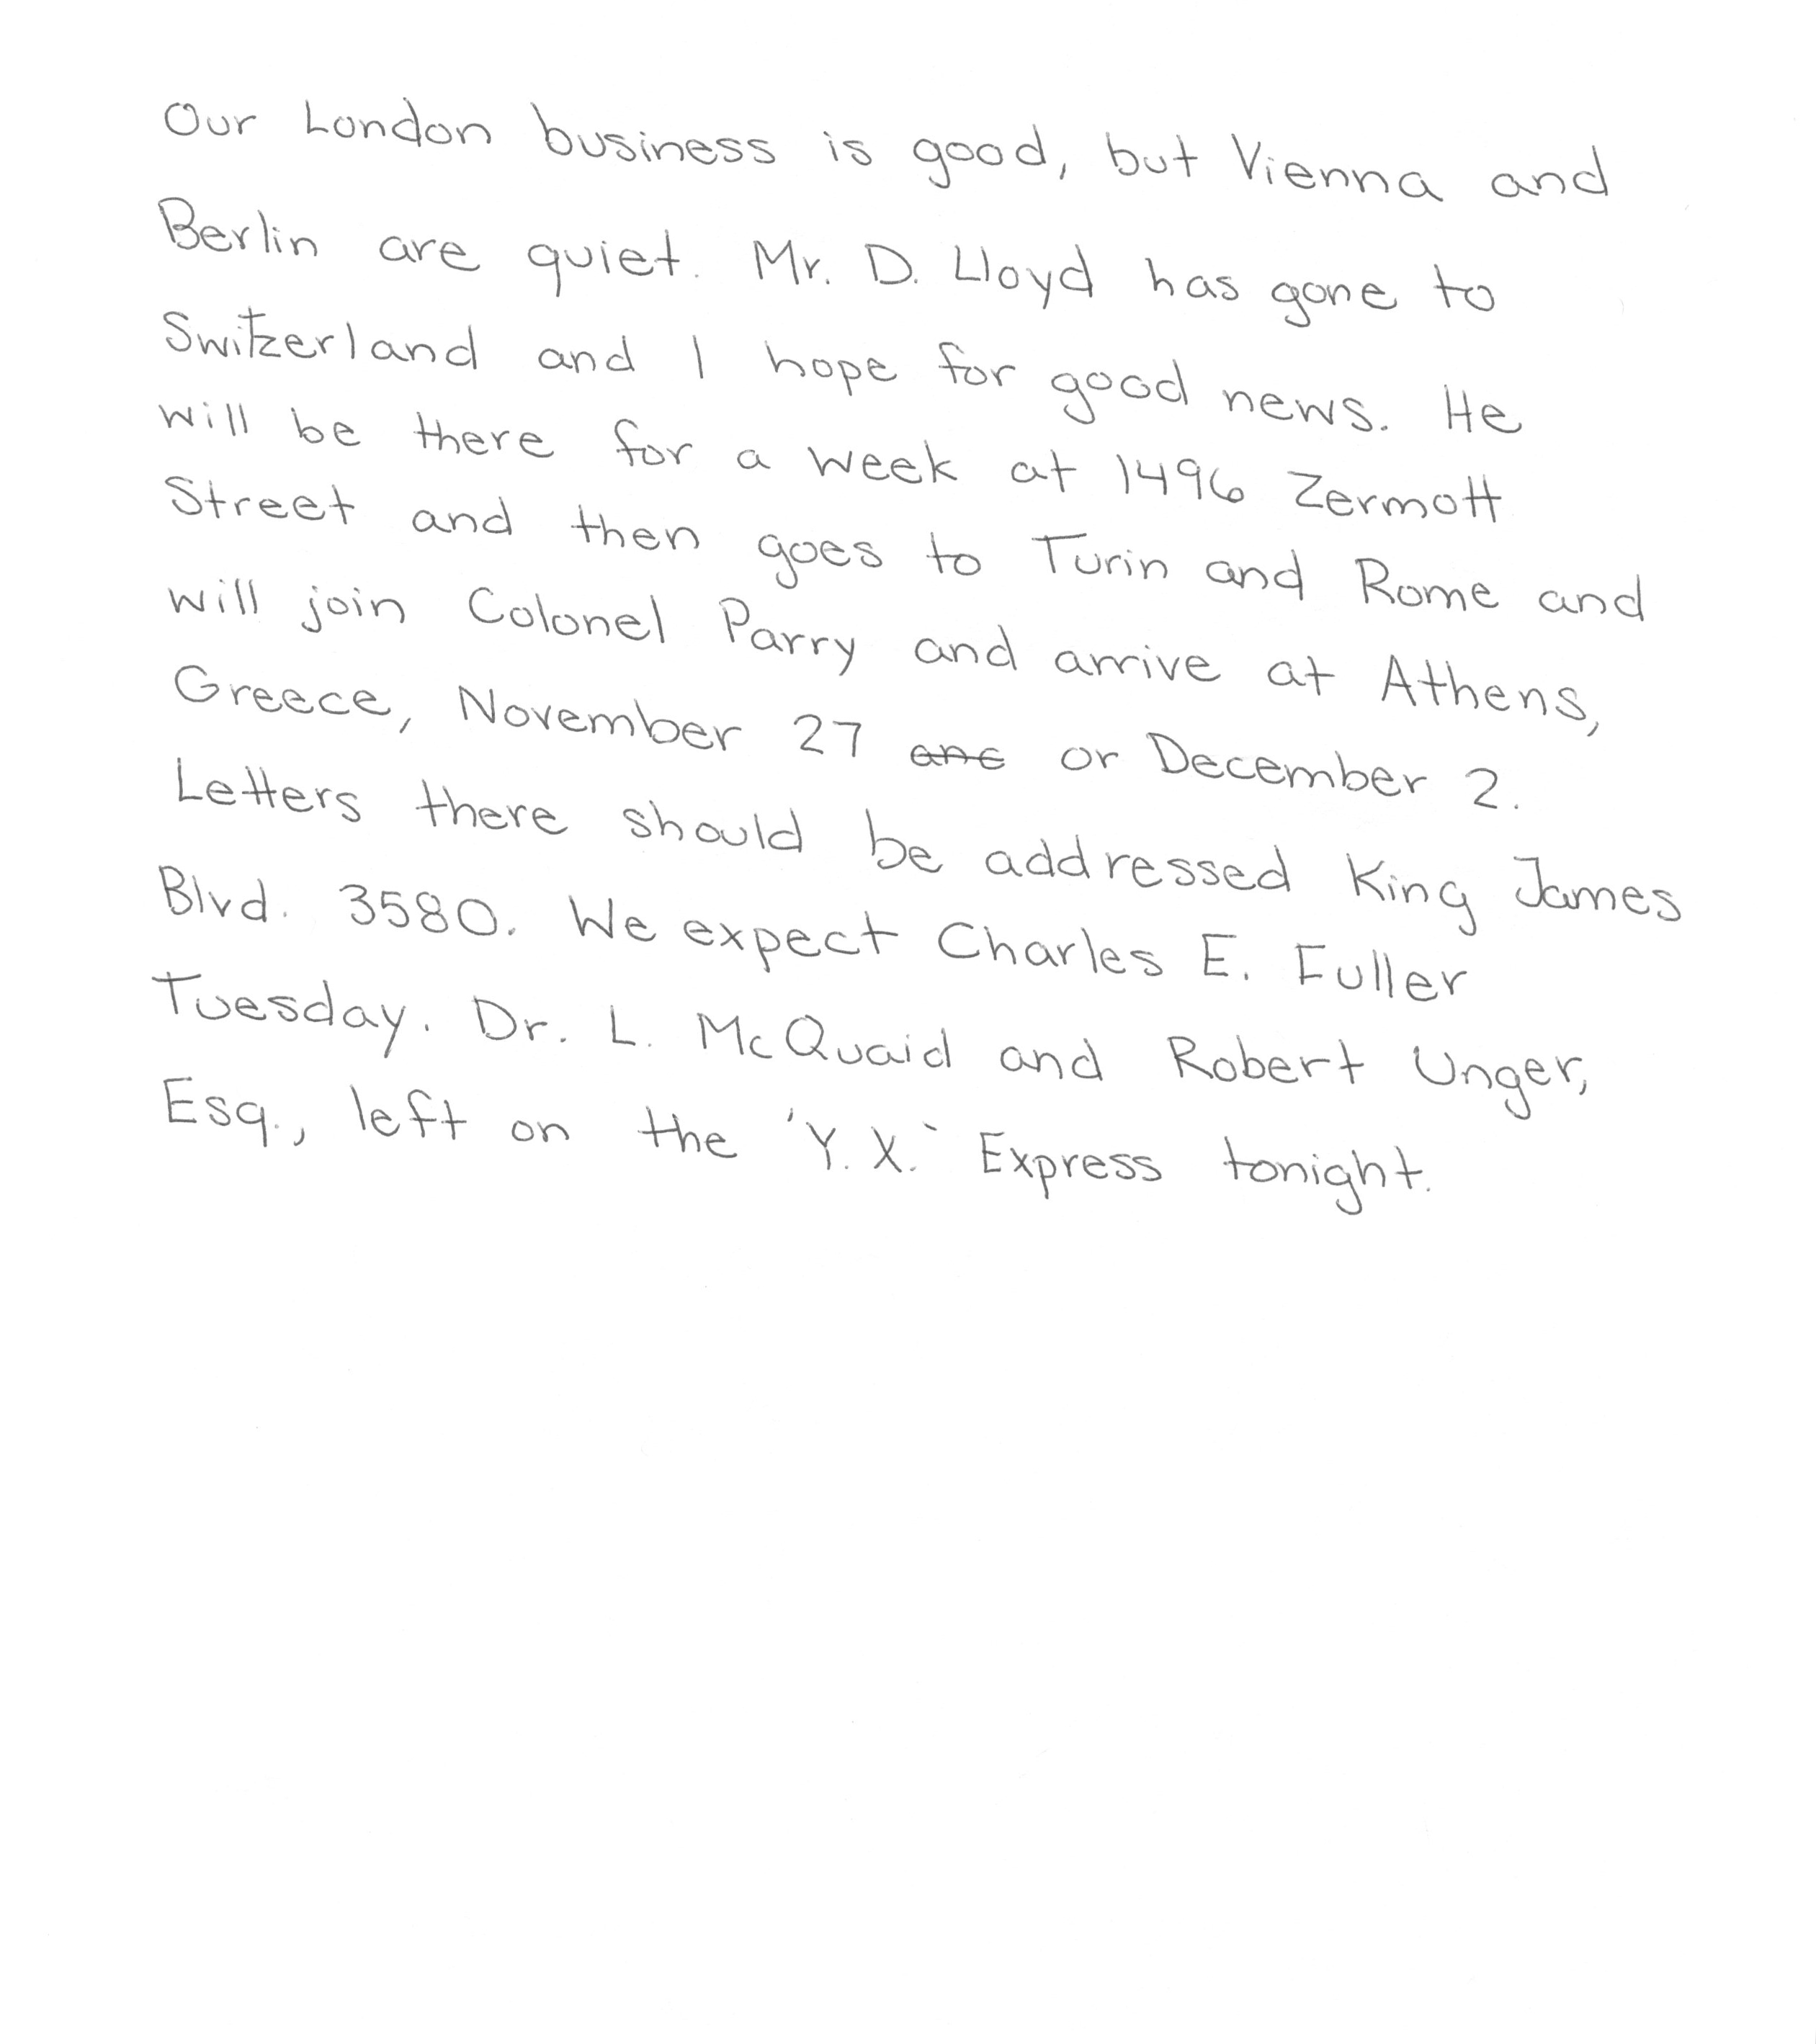 Our London business is good, but Vienna and
Berlin are quiet. Mr. D. Lloyd has gone to
Switzerland and I hope for good news. He
will be there for a week at 1496 Zermott
Street and then goes to Turin and Rome and
will join Colonel Parry and arrive at Athens,
Greece, November 27 or December 2.
Letters there should be addressed King James
Blvd. 3580. We expect Charles E. Fuller
Tuesday. Dr. L. McQuaid and Robert Unger,
Esq., left on the 'Y.X.' Express tonight.